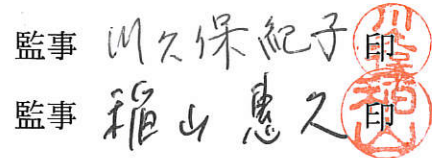 監事 川久保紀子 印
監事 稲山惠久 印